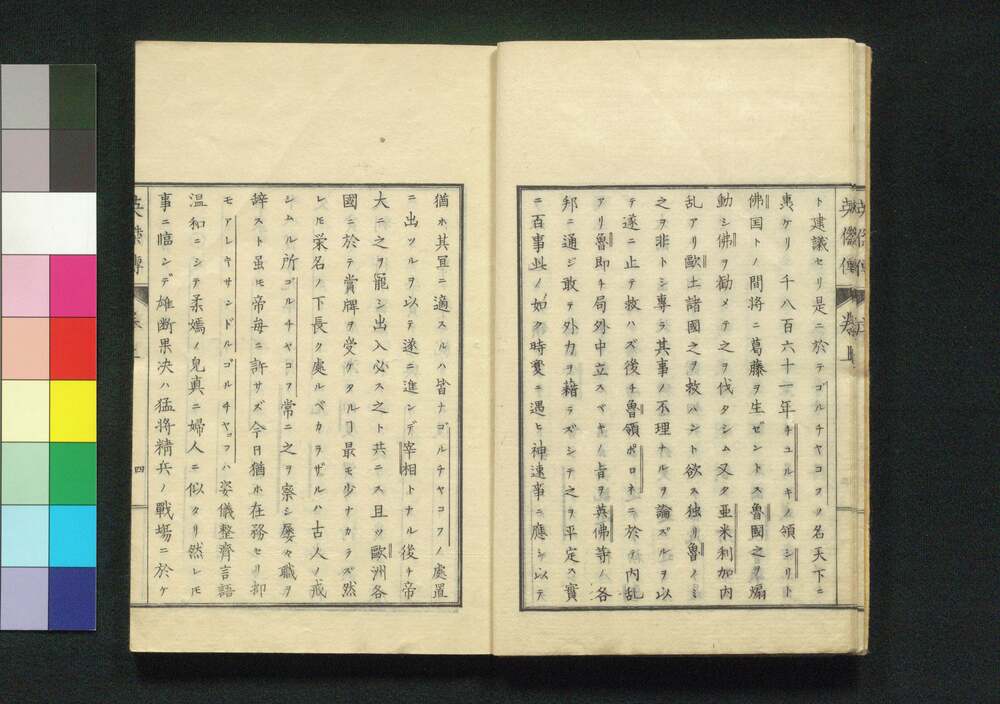 ト建議セリ是ニ於テゴルチヤコフノ名天下ニ
轟ケリ○千八百六十一年チユルキノ領シリト
佛国トノ間將ニ葛藤ヲ生ゼントス魯國之ヲ煽
動シ佛ヲ勧メテ之ヲ伐タシム又タ亜米利加内
乱アリ歐土諸國之ヲ救ハント欲ス独リ魯ノミ
之ヲ非トシ專ラ其事ノ不理ナルヲ論ズルヲ以
テ遂ニ止テ救ハズ後チ魯領ポロネニ於テ内乱
アリ魯即チ局外中立スベキノ旨ヲ英佛等ノ各
邦ニ通ジ敢テ外力ヲ藉ラズシテ之ヲ平定ス實
ニ百事此ノ如ク時変ニ遇ヒ神速事ニ應シ以テ
猶ホ其冝ニ適スルハ皆ナゴルチヤコフノ處置
ニ出ツルヲ以テ遂ニ進ンデ宰相トナル後チ帝
大ニ之ヲ寵シ出入必ス之ト共ニス且ツ歐洲各
國ニ於テ賞牌ヲ受ケタルヿ最モ少ナカラズ然
レモ栄名ノ下長ク處ルベカラザルハ古人ノ戒
シムル所ゴルチヤコフ常ニ之ヲ察シ屡々職ヲ
辞スト虽モ帝毎ニ許サズ今日猶ホ在務セリ却
モアレキサンドルゴルチヤコフハ姿儀整齊言語
温和ニシテ柔嫣ノ皃真ニ婦人ニ似タリ然レモ
事ニ臨ンデ雄断果决ハ猛将精兵ノ戰場ニ於ケ
四